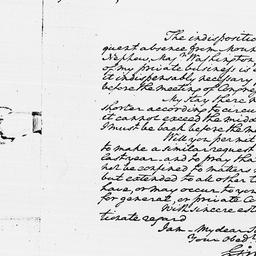 The indispositio
quent absence from Moun
Nephew, Majr. Washington
of my private business is
it indispensably necessary
before the meeting of Congre
My stay there w
shorter according to circu
it cannot exceed the midd
I must be back before the m
Will you permit
to make a similar request
last year—and to pray tha
not be confined to matters
but extended to all other
have, or may occur to you
for general, or private Co
With sincere est
tionate regard
I am—My dear
Your Obedt.